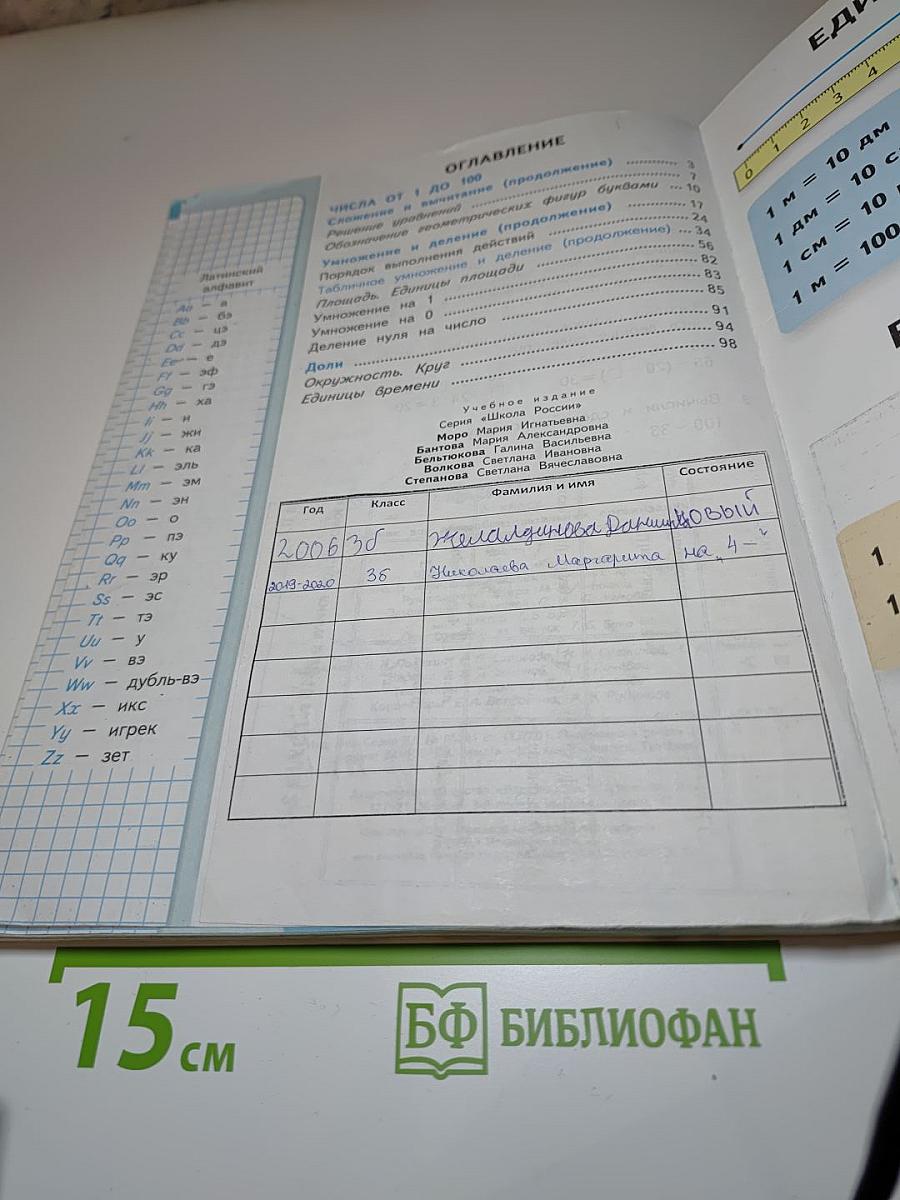 Латинский
алфавит
Aa — а
Bb — бэ
Cc — цэ
Dd — дэ
Ee — е
Ff — эф
Gg — гэ
Hh — ха
Ii — и
Jj — жи
Kk — ка
Ll — эль
Mm — эм
Nn — эн
Oo — о
Pp — пэ
Qq — ку
Rr — эр
Ss — эс
Tt — тэ
Uu — у
Vv — вэ
Ww — дубль-вэ
Xx — икс
Yy — игрек
Zz — зет
ОГЛАВЛЕНИЕ
ЧИСЛА ОТ 1 ДО 100
Сложение и вычитание (продолжение) 3
Решение уравнений 7
Обозначение геометрических фигур буквами 10
Умножение и деление (продолжение) 17
Порядок выполнения действий 24
Табличное умножение и деление (продолжение) 34
Площадь. Единицы площади 56
Умножение на 1 82
Умножение на 0 83
Деление нуля на число 85
Доли 91
Окружность. Круг 94
Единицы времени 98
Учебное издание
Серия «Школа России»
Моро Мария Игнатьевна
Бантова Мария Александровна
Бельтюкова Галина Васильевна
Волкова Светлана Ивановна
Степанова Светлана Вячеславовна
Год Класс Фамилия и имя Состояние
2006 3б новый
2019-2020 3б Николаева Маргарита на „4-"
0 1 2 3 4
1 м = 10 дм
1 дм = 10
1 см = 10
1 м = 100
1
1
15 см
БФ БИБЛИОФАН